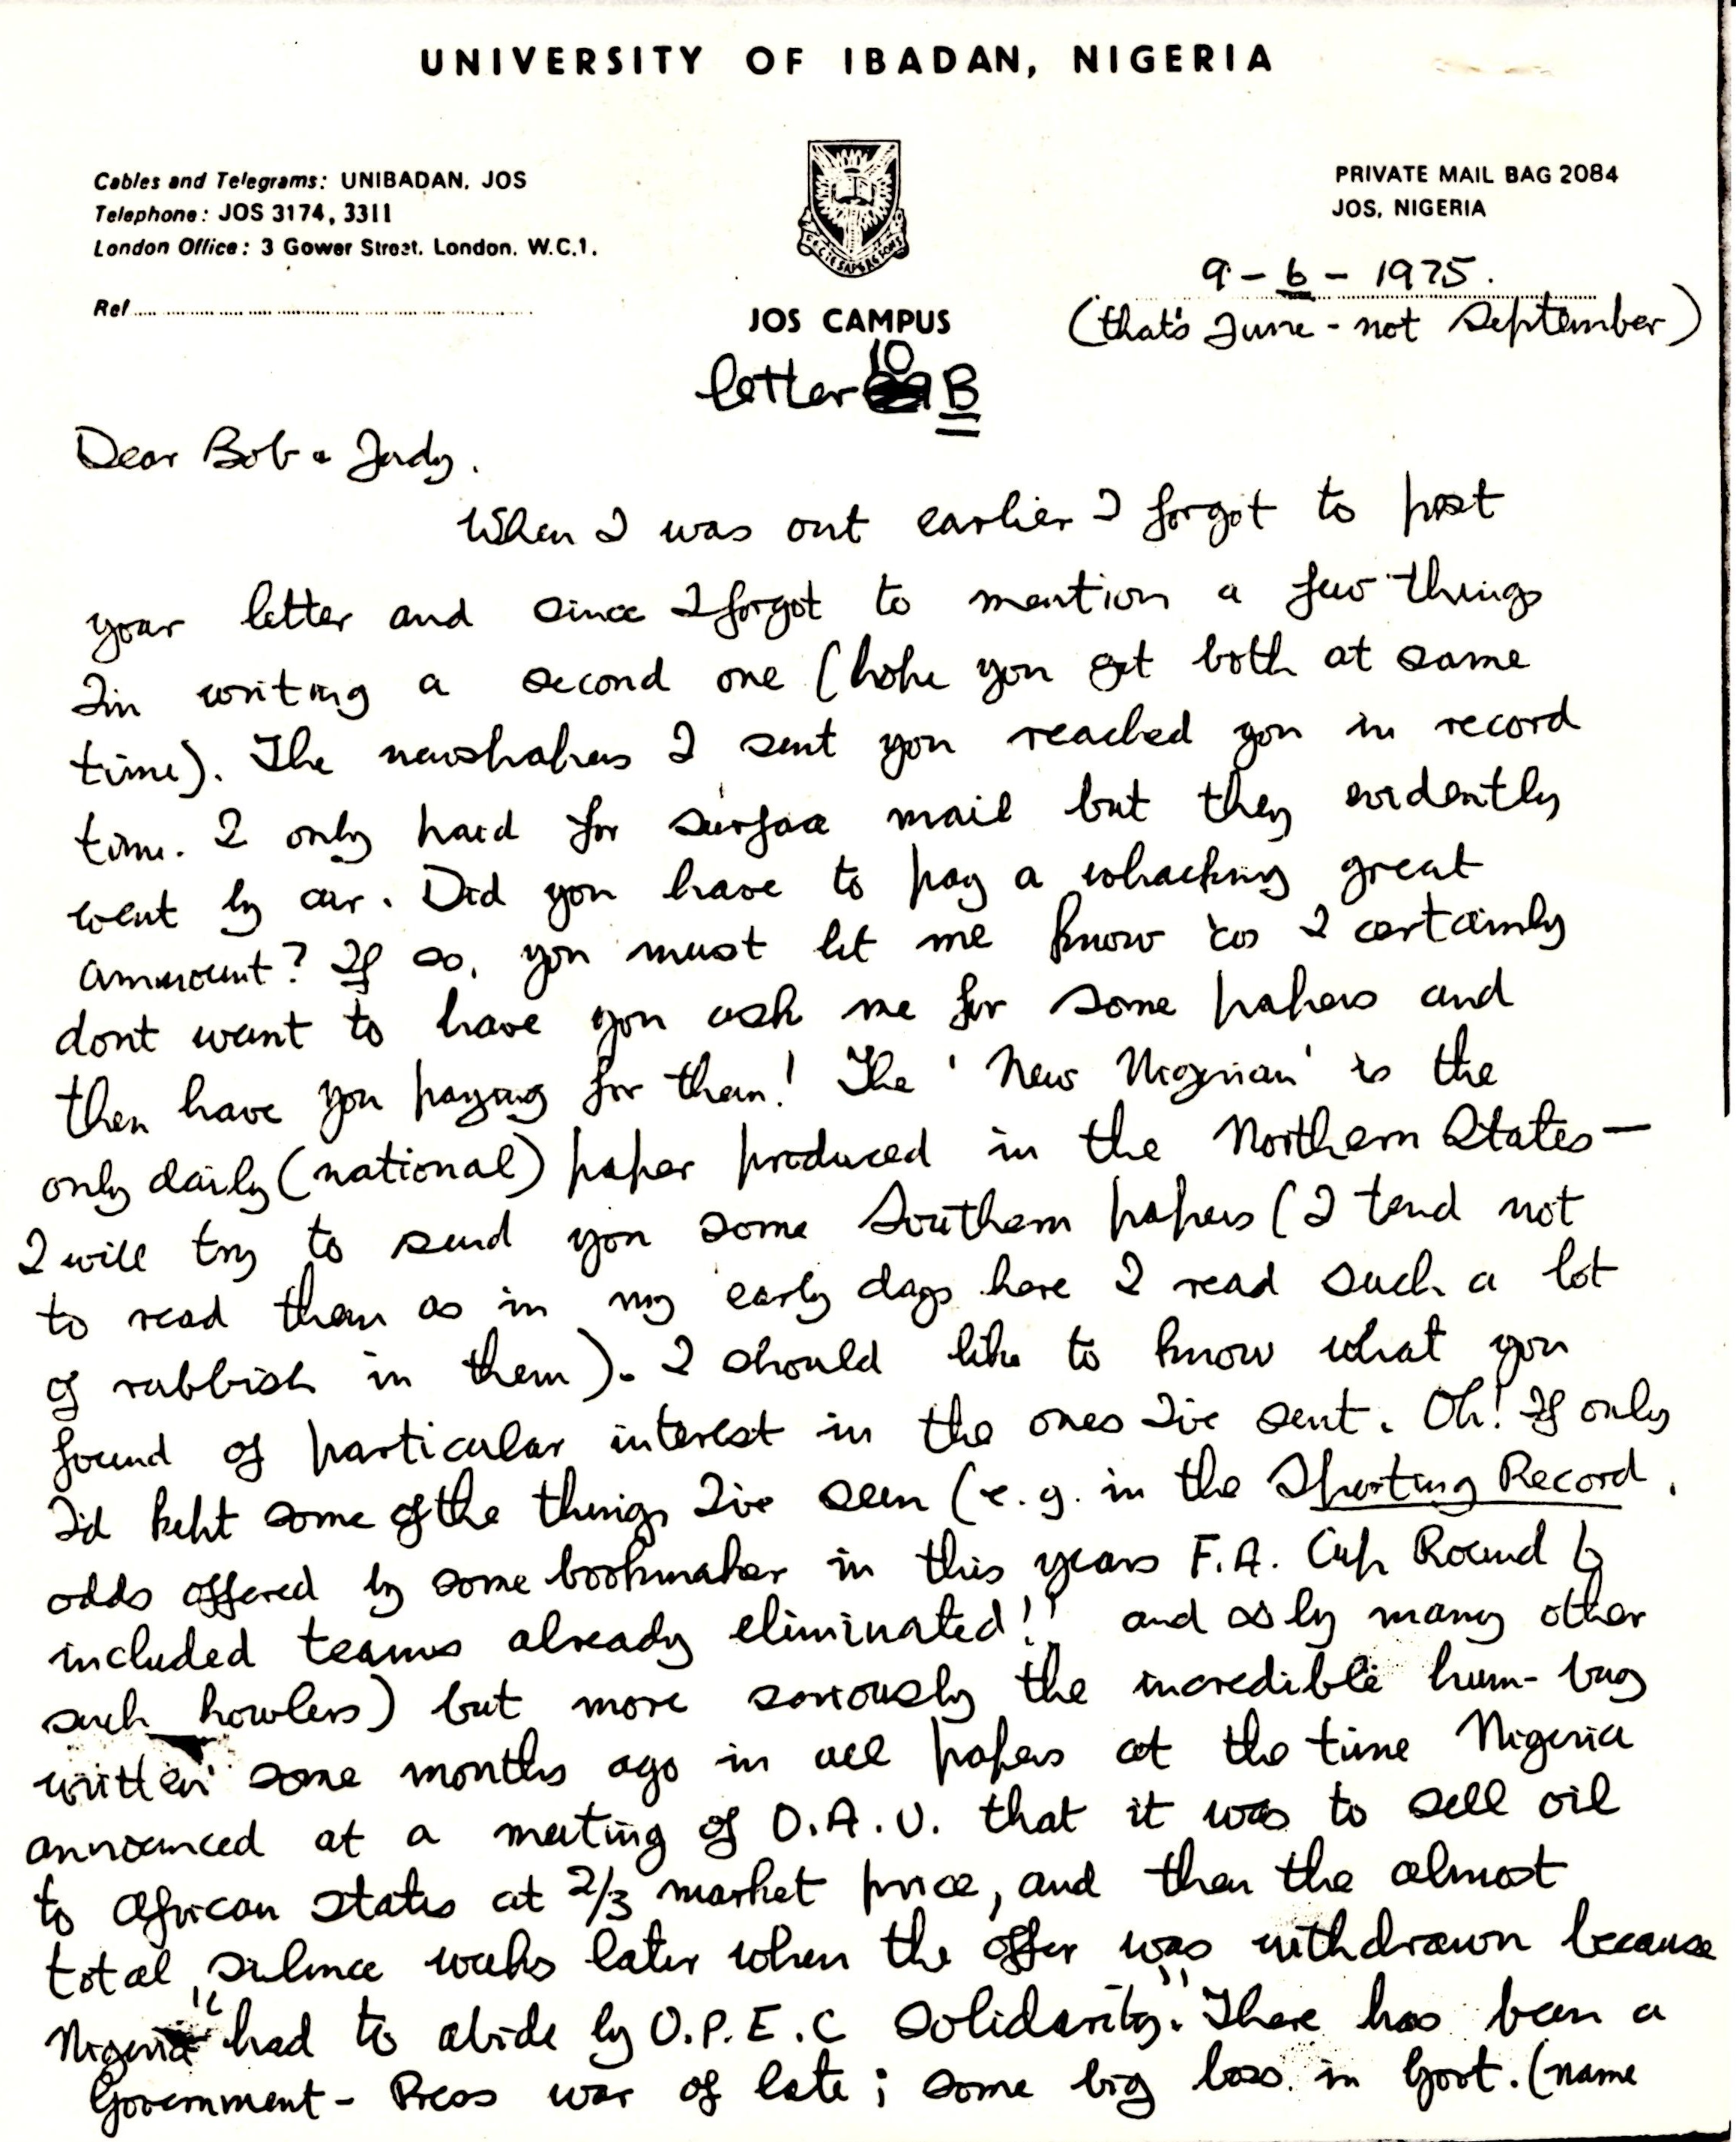 UNIVERSITY OF IBADAN, NIGERIA
Cables and Telegrams: UNIBADAN, JOS
Telephone: JOS 3174, 3311
London Office: 3 Gower Street, London. W.C.1.
Ref
PRIVATE MAIL BAG 2084
JOS, NIGERIA
JOS CAMPUS
9-6-1975.
(that's June - not September)
letter 10 B
Dear Bob & Judy.
When I was out earlier I forgot to post
your letter and since I forgot to mention a few things
I'm writing a second one (hope you get both at same
time). The newspapers I sent you reached you in record
time. I only paid for surface mail but they evidently
went by air. Did you have to pay a whacking great
ammount? If so, you must let me know 'cos I certainly
dont want to have you ask me for some papers and
then have you paying for them! The 'New Nigerian' is the
only daily (national) paper produced in the Northern States —
I will try to send you some Southern papers (I tend not
to read them as in my early days here I read such a lot
of rubbish in them). I should like to know what you
found of particular interest in the ones I've sent. Oh! If only
I'd kept some of the things I've seen (e.g. in the Sporting Record,
odds offered by some bookmaker in this years F.A. Cup Round 6
included teams already eliminated!! and many other
such howlers) but more seriously the incredible hum-bug
written some months ago in all papers at the time Nigeria
announced at a meeting of O.A.U. that it was to sell oil
to African states at 2/3 market price, and then the almost
total silence weeks later when the offer was withdrawn because
Nigeria "had to abide by O.P.E.C solidarity." There has been a
Government - Press war of late; some big boss in Govt. (name